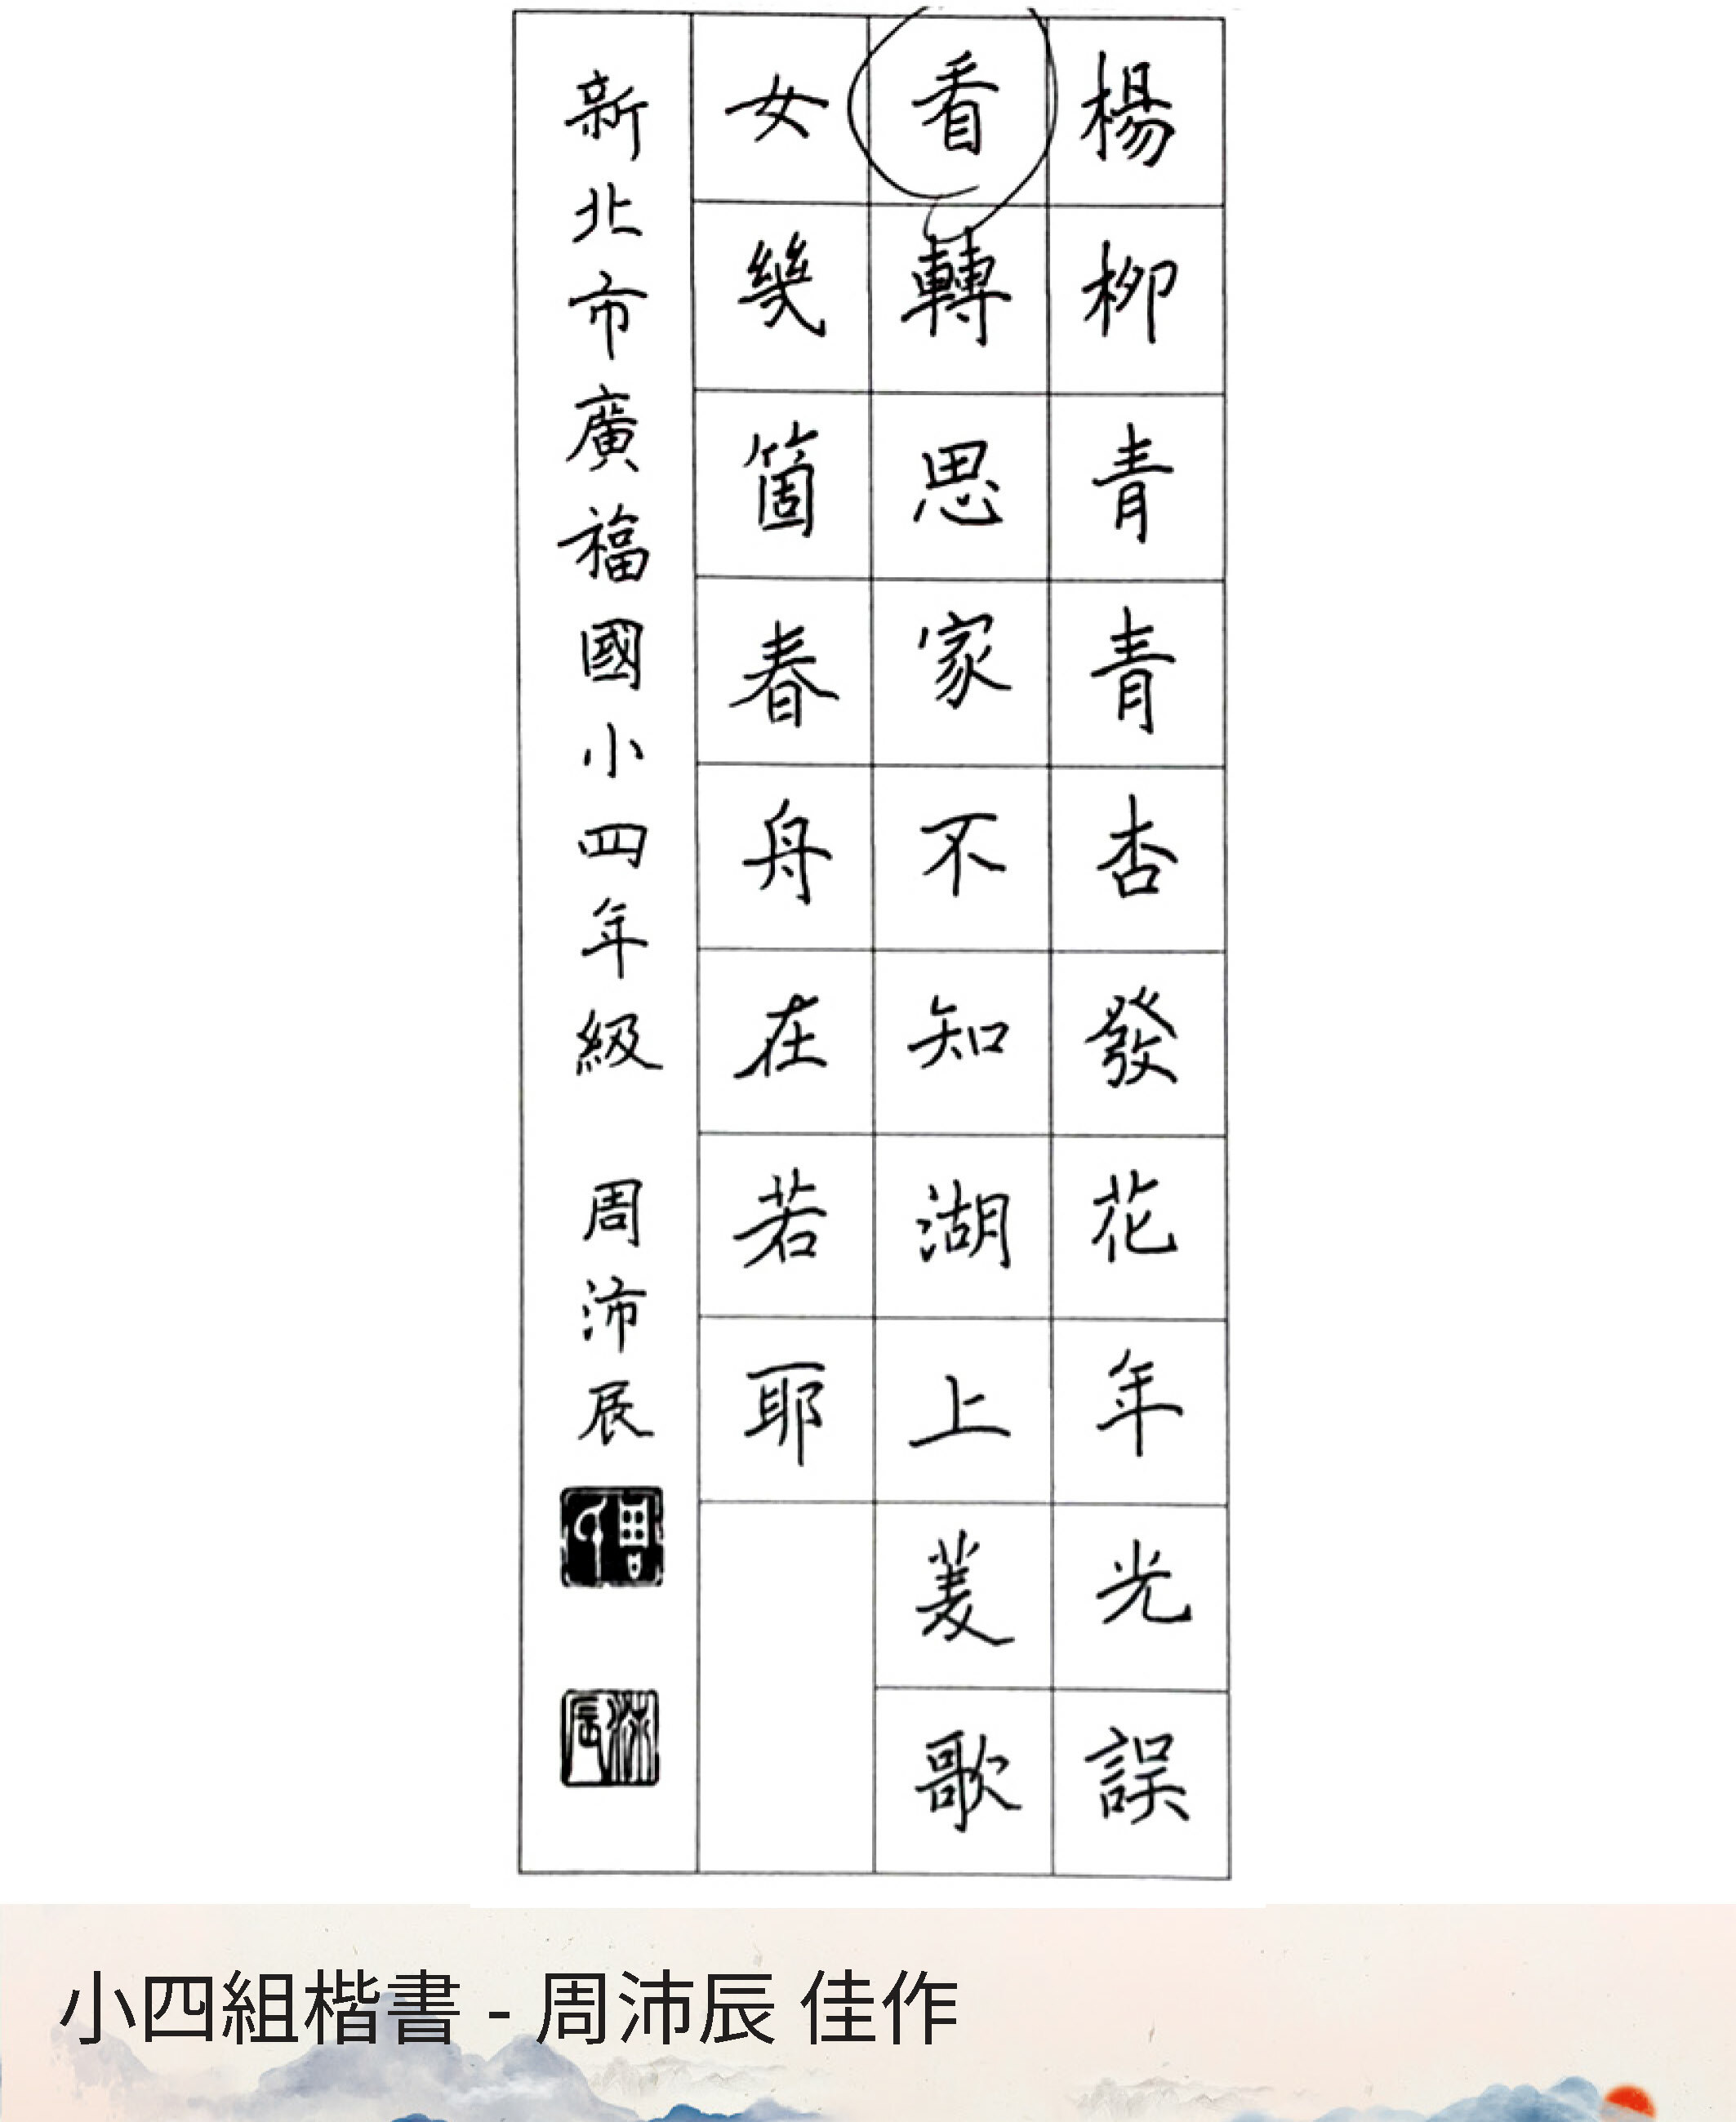 楊柳青青杏發花年光誤
看轉思家不知湖上菱歌
女幾箇春舟在若耶
新北市廣福國小四年級 周沛辰
周
沛辰
小四組楷書 - 周沛辰 佳作